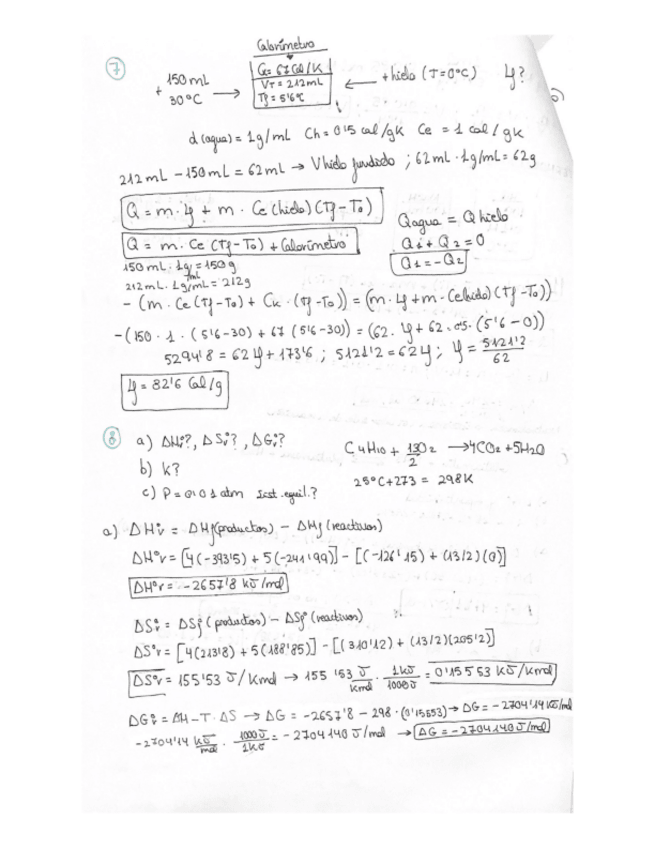 Calorímetro
7
+ 150 mL
30°C
Ck = 67 Cal/K
VT = 212 mL
Tf = 5'6°C
+ hielo (T=0°C) Lf?
d(agua) = 1g/mL Ch = 0'5 cal/gK Ce = 1 cal/gK
212 mL - 150 mL = 62 mL → V hielo fundido ; 62 mL · 1g/mL = 62g
Q = m · Lf + m · Ce(hielo)(Tf - To)
Q = m · Ce (Tf - To) + Calorímetro
150 mL · 1g/mL = 150 g
212 mL · 1g/mL = 212g
Q agua = Q hielo
Q1 + Q2 = 0
Q1 = - Q2
- (m · Ce (Tf - To) + Ck · (Tf - To)) = (m · Lf + m · Ce hielo)(Tf - To))
-(150 · 1 · (5'6 - 30) + 67 (5'6 - 30)) = (62 · Lf + 62 · 0'5 · (5'6 - 0))
5294'8 = 62 Lf + 173'6 ; 5121'2 = 62 Lf ; Lf = 5121'2 / 62
Lf = 82'6 Cal/g
8 a) ΔHr°?, ΔSr°?, ΔGr°?
C4H10 + 13/2 O2 → 4CO2 + 5H2O
b) K?
25°C + 273 = 298 K
c) P = 0'01 atm Inst. equil.?
a) ΔHr° = ΔHf (productos) - ΔHf (reactivos)
ΔH°r = [4(-393'5) + 5(-241'99)] - [(-126'15) + (13/2)(0)]
ΔH°r = -2657'8 kJ/mol
ΔSr° = ΔSf° (productos) - ΔSf° (reactivos)
ΔS°r = [4(213'8) + 5(188'85)] - [(310'12) + (13/2)(205'2)]
ΔS°r = 155'53 J/Kmol → 155'53 J/Kmol · 1kJ/1000J = 0'15553 kJ/Kmol
ΔGr° = ΔH - T · ΔS → ΔG = -2657'8 - 298 · (0'15553) → ΔG = -2704'14 kJ/mol
-2704'14 kJ/mol · 1000J/1kJ = -2704140 J/mol → ΔG = -2704140 J/mol